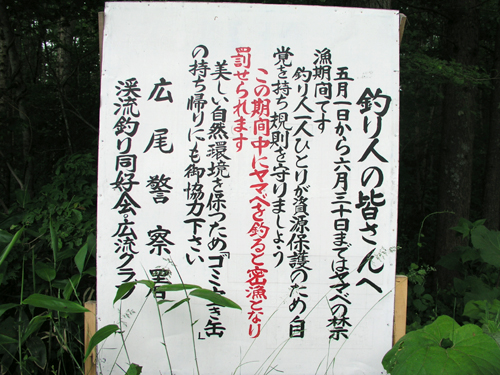 釣り人の皆さんへ
五月一日から六月三十日まではヤマベの禁
漁期間です
釣り人一人ひとりが資源保護のため自
覚を持ち規則を守りましょう
この期間中にヤマベを釣ると密漁となり
罰せられます
美しい自然環境を保つため「ゴミ・空き缶」
の持ち帰りにも御協力下さい
広尾警察署
渓流釣り同好会・広流クラブ